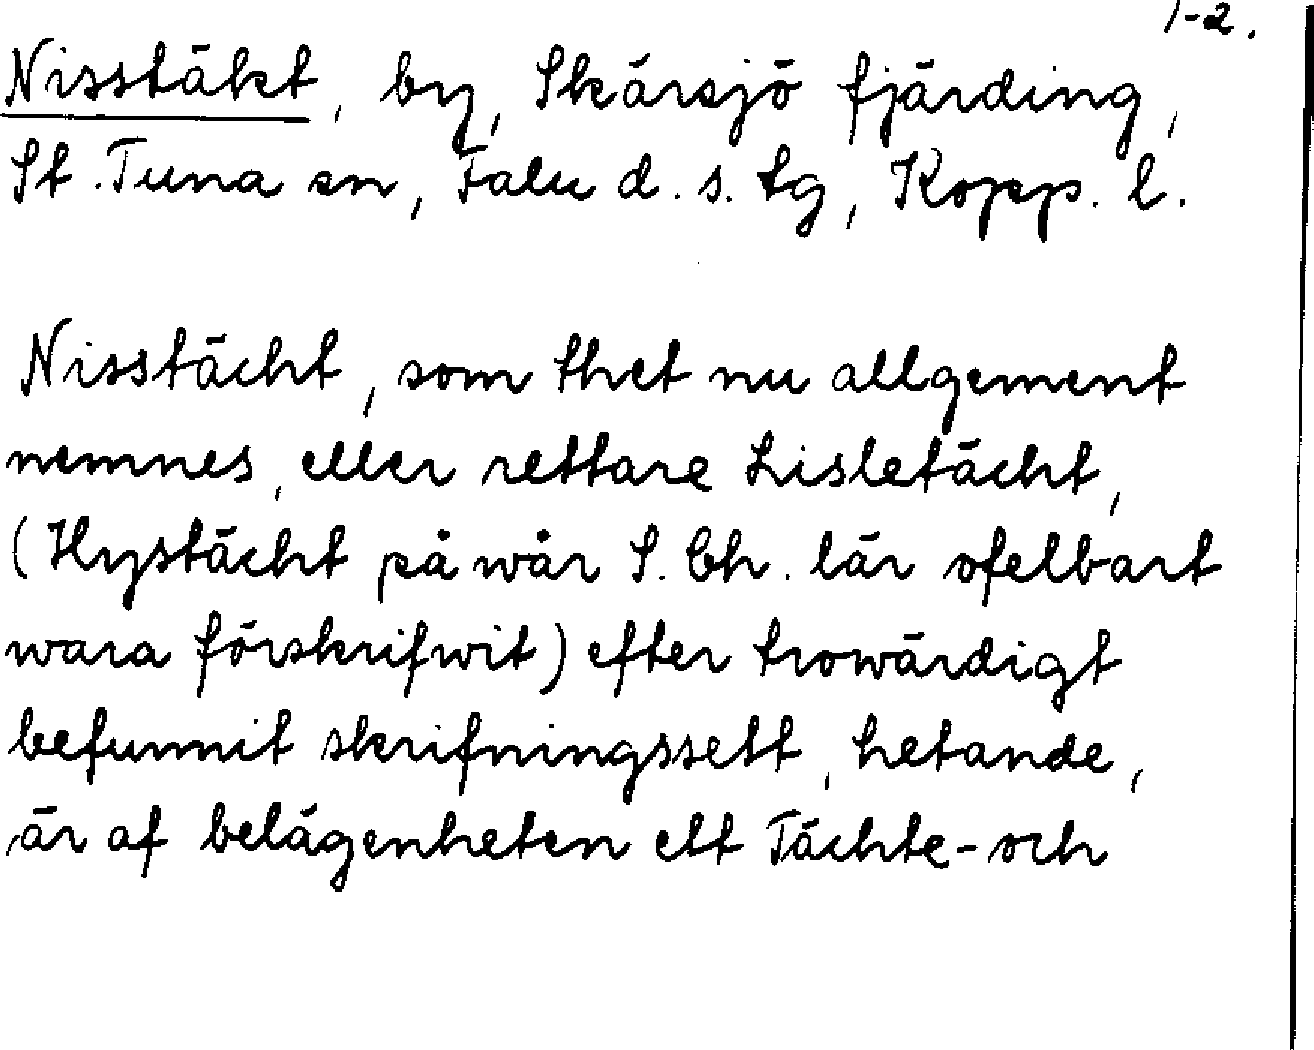 1-2.
Nisstäkt, by, Skärsjö fjärding,
St. Tuna sn, Falu d. s. tg, Kopp. l.
Nisstächt, som thet nu allgement
nemnes, eller rettare Lisletächt,
(Hystächt på wår S. Ch. lär ofelbart
wara förskrifwit) efter trowärdigt
befunnit skrifningssett, hetande,
är af belägenheten ett Tächte- och